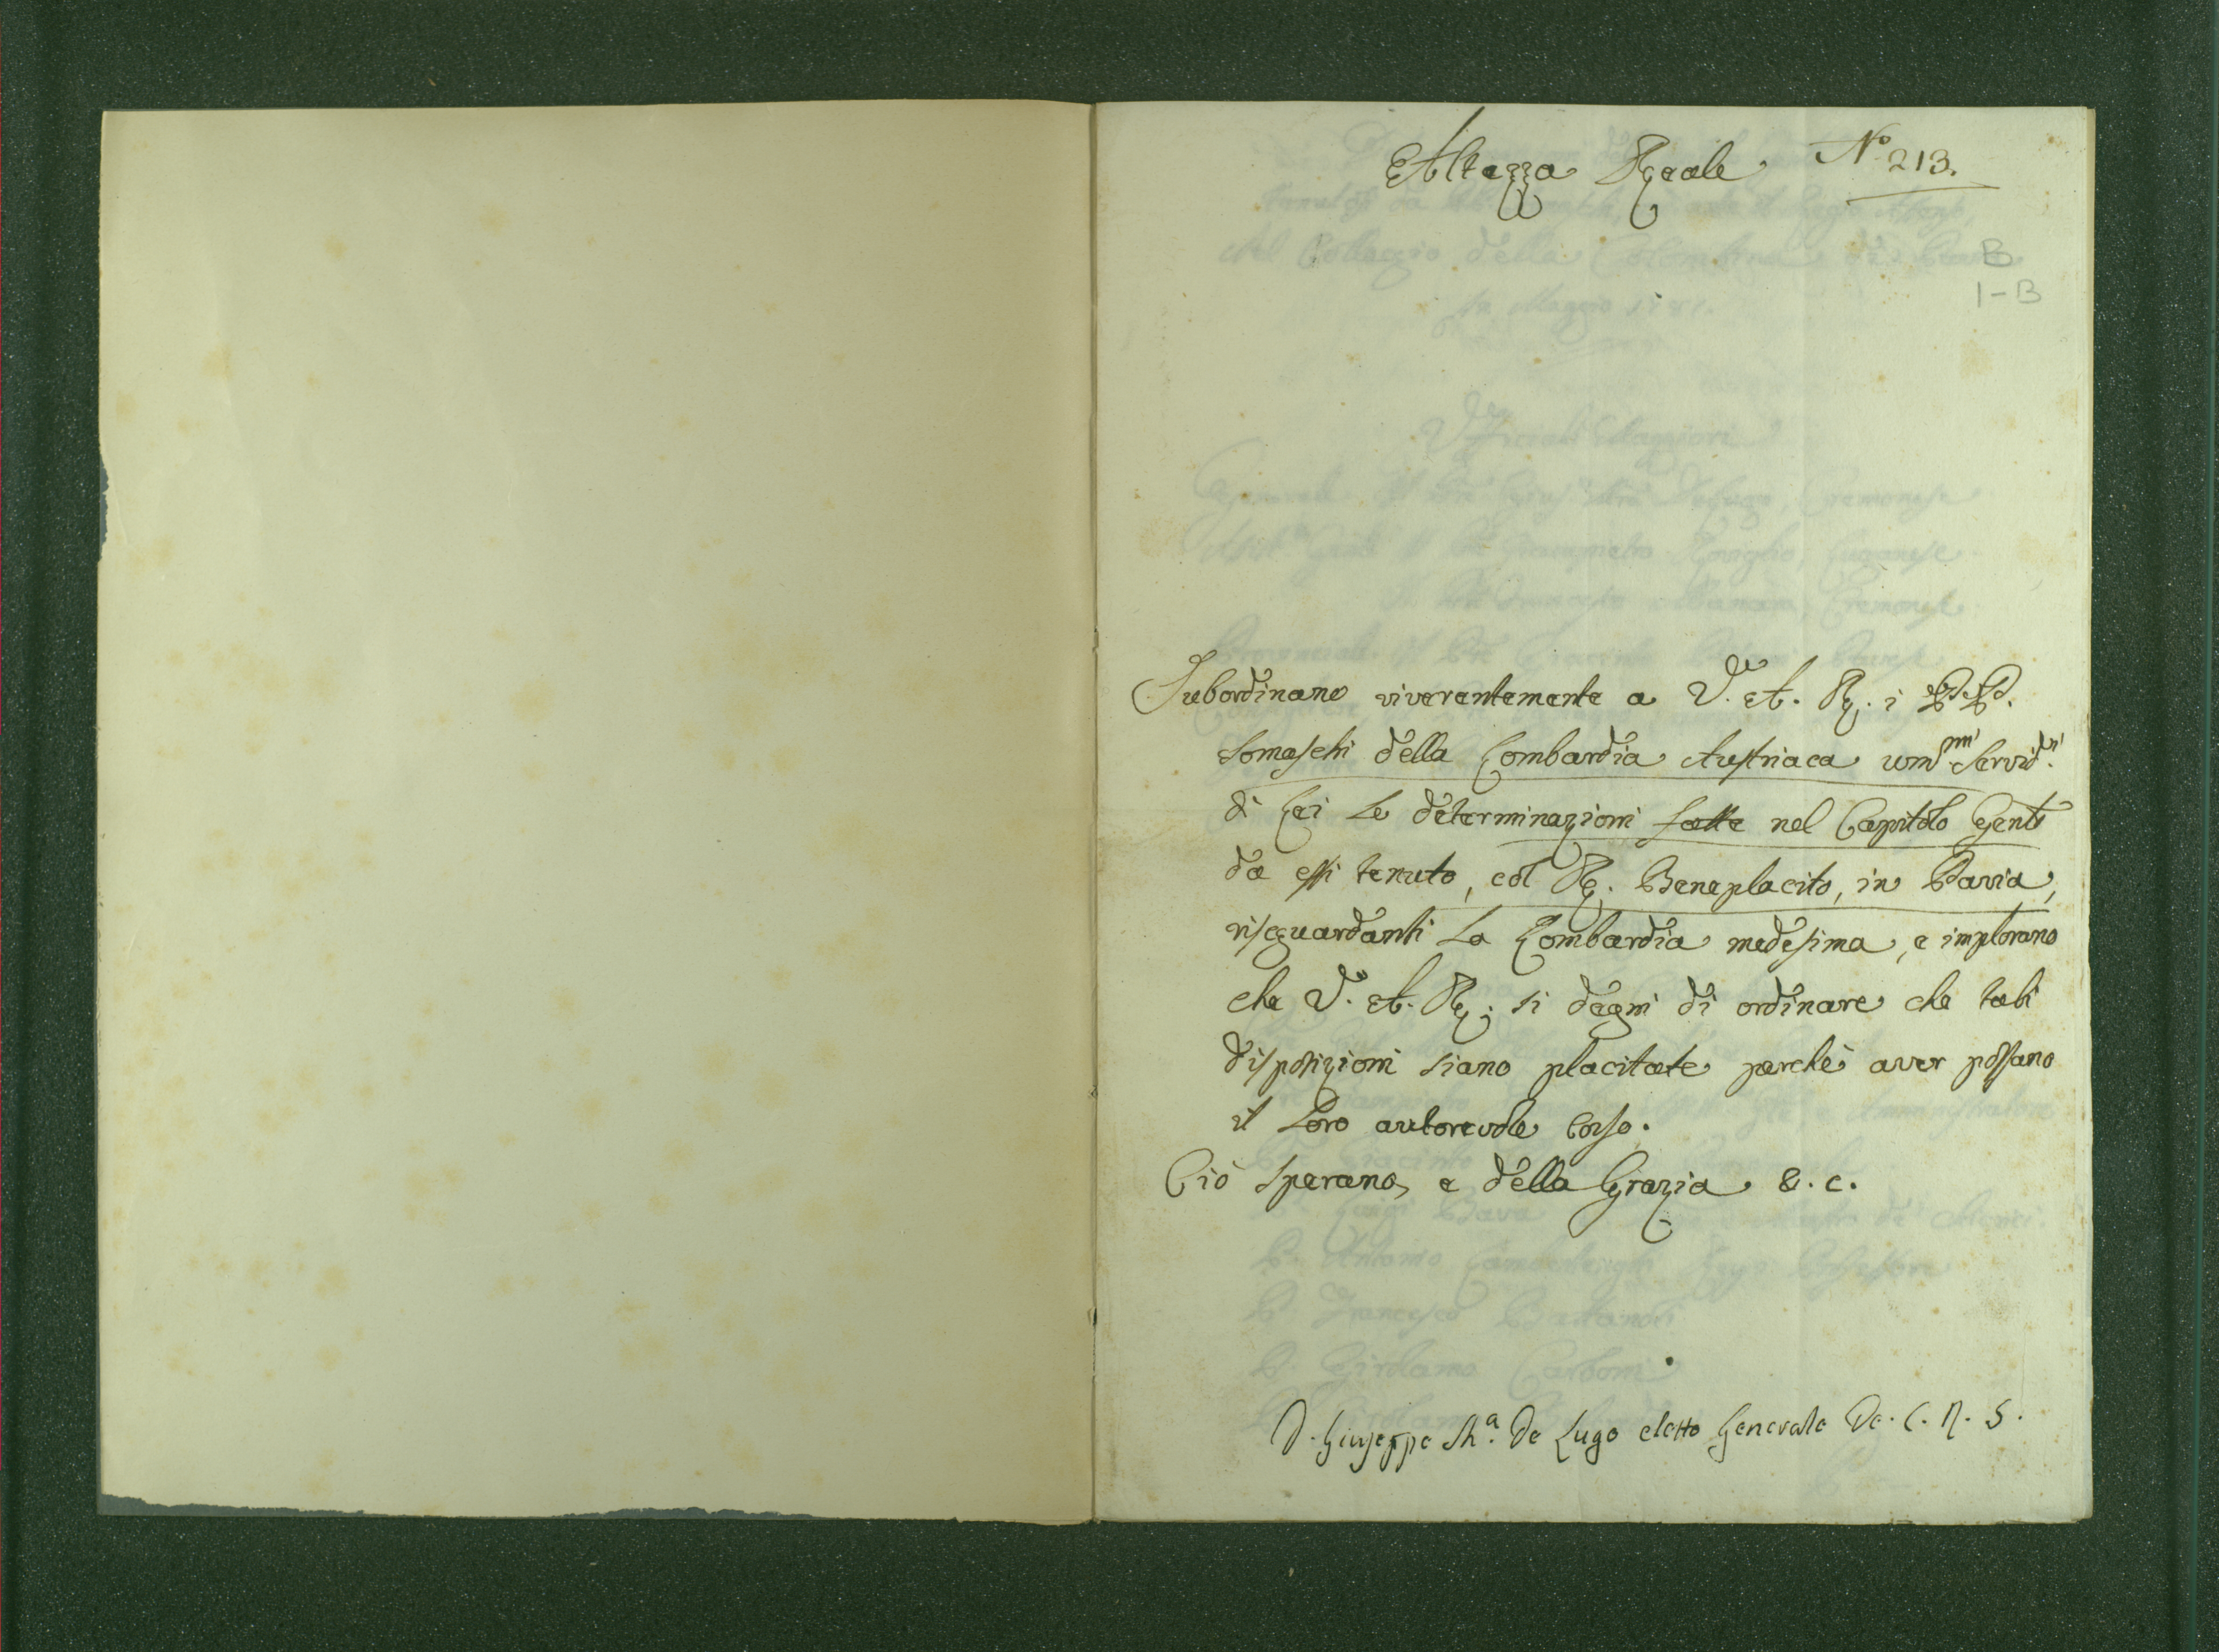 Altezza Reale
N.o 213.
B
1-B
Subordinano riverentemente a V. A. R. i PP.
Somaschi della Lombardia Austriaca um.mi Servid.ri
di Lei le determinazioni fatte nel Capitolo Genle
da essi tenuto, col R. Beneplacito, in Pavia,
risguardanti la Lombardia medesima, e implorano
che V. A. R. si degni di ordinare che tali
disposizioni siano placitate perchè aver possano
il loro autorevole corso.
Ciò sperano, e della Grazia &. c.
D. Giuseppe M.a De Lugo eletto Generale De. C. R. S.